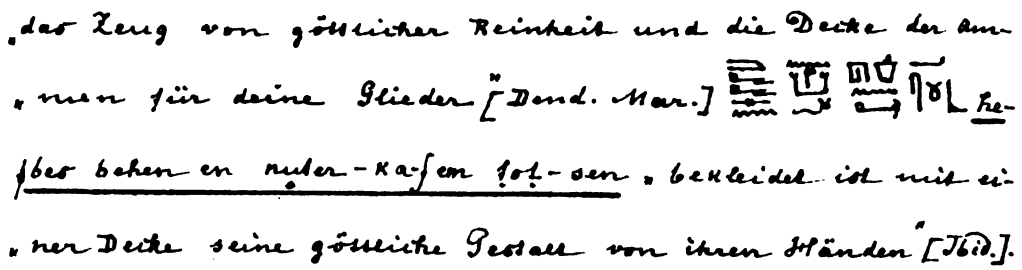 „das Zeug von göttlicher Reinheit und die Decke der Am-
„men für deine Glieder“ [Dend. Mar.] he-
bes behen en nuter-ka-f em tot-sen „bekleidet ist mit ei-
„ner Decke seine göttliche Gestalt von ihren Händen“ [Ibid.].